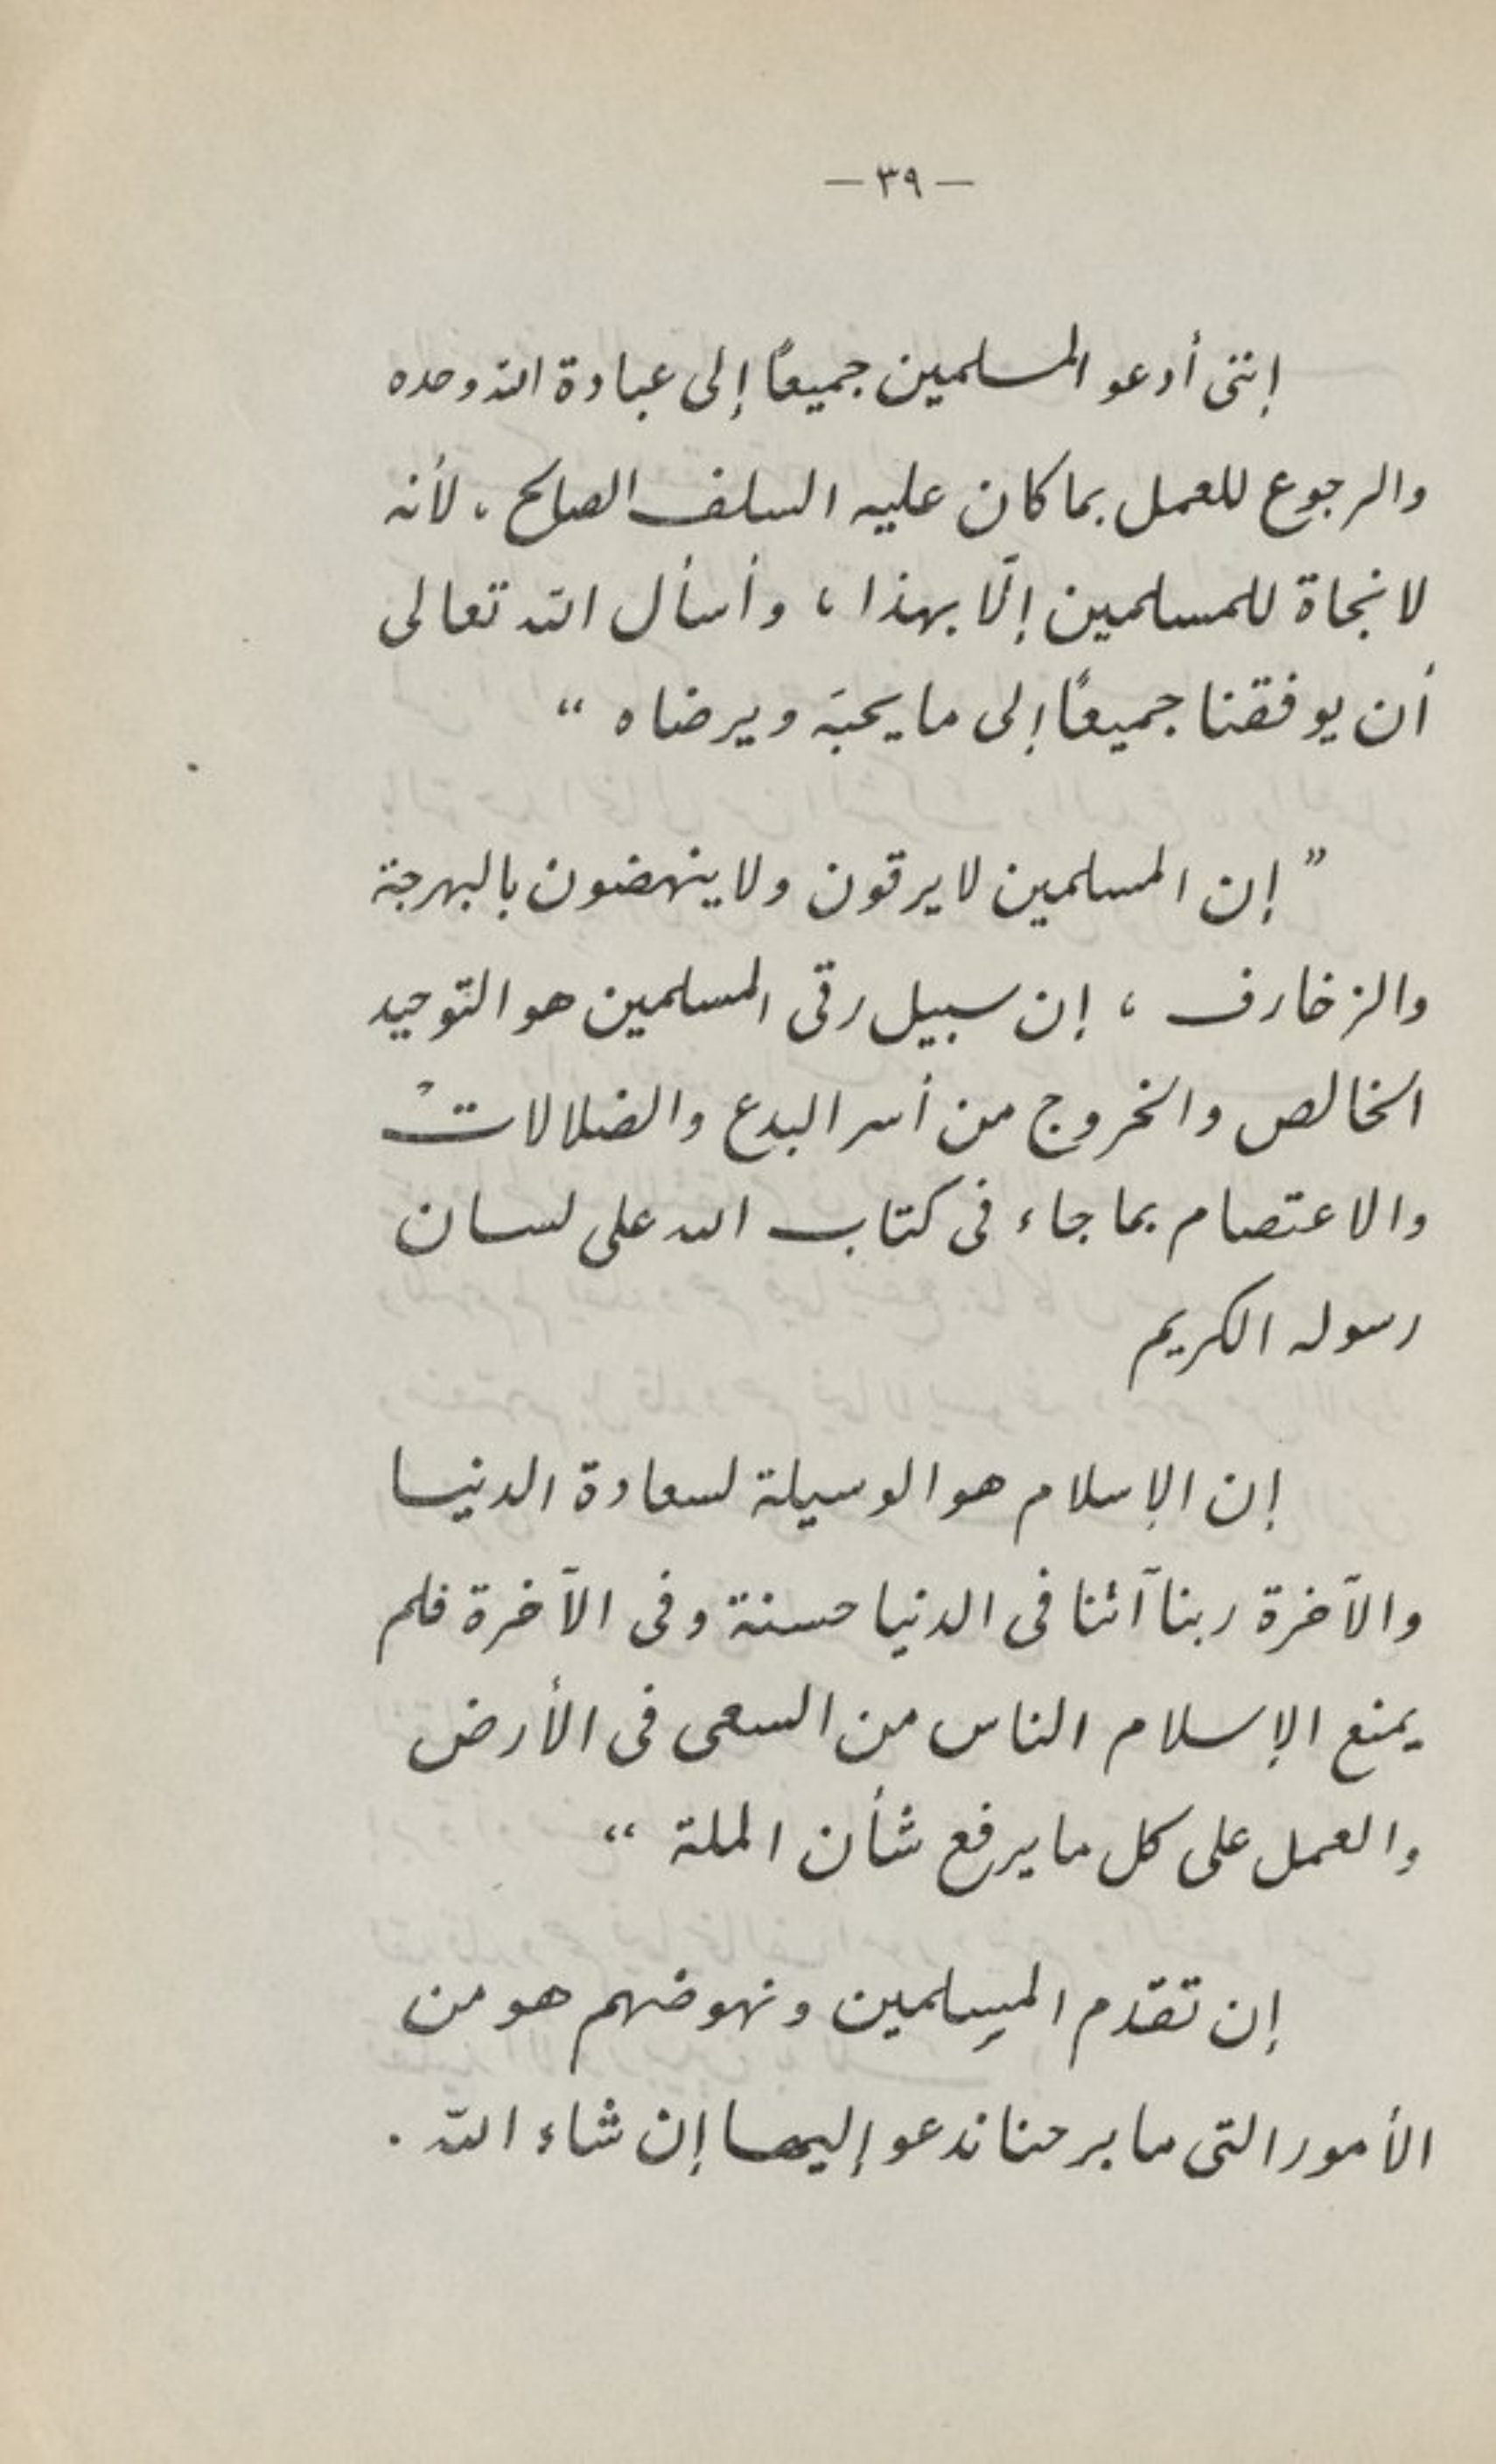 — ٣٩ —
إننى أدعو المسلمين جميعًا إلى عبادة الله وحده
والرجوع للعمل بما كان عليه السلف الصالح ، لأنه
لا نجاة للمسلمين إلّا بهذا ، وأسأل الله تعالى
أن يوفقنا جميعًا إلى ما يحبّه ويرضاه “
” إن المسلمين لا يرقون ولا ينهضون بالبهرجة
والزخارف ، إن سبيل رقى المسلمين هو التّوحيد
الخالص والخروج من أسر البدع والضلالات
والاعتصام بما جاء فى كتاب الله على لسان
رسوله الكريم
إن الإسلام هو الوسيلة لسعادة الدنيا
والآخرة ربنا آتنا فى الدنيا حسنة وفى الآخرة فلم
يمنع الإسلام الناس من السعى فى الأرض
والعمل على كل ما يرفع شأن الملة “
إن تقدّم المسلمين ونهوضهم هو من
الأمور التى ما برحنا ندعو إليها إن شاء الله .